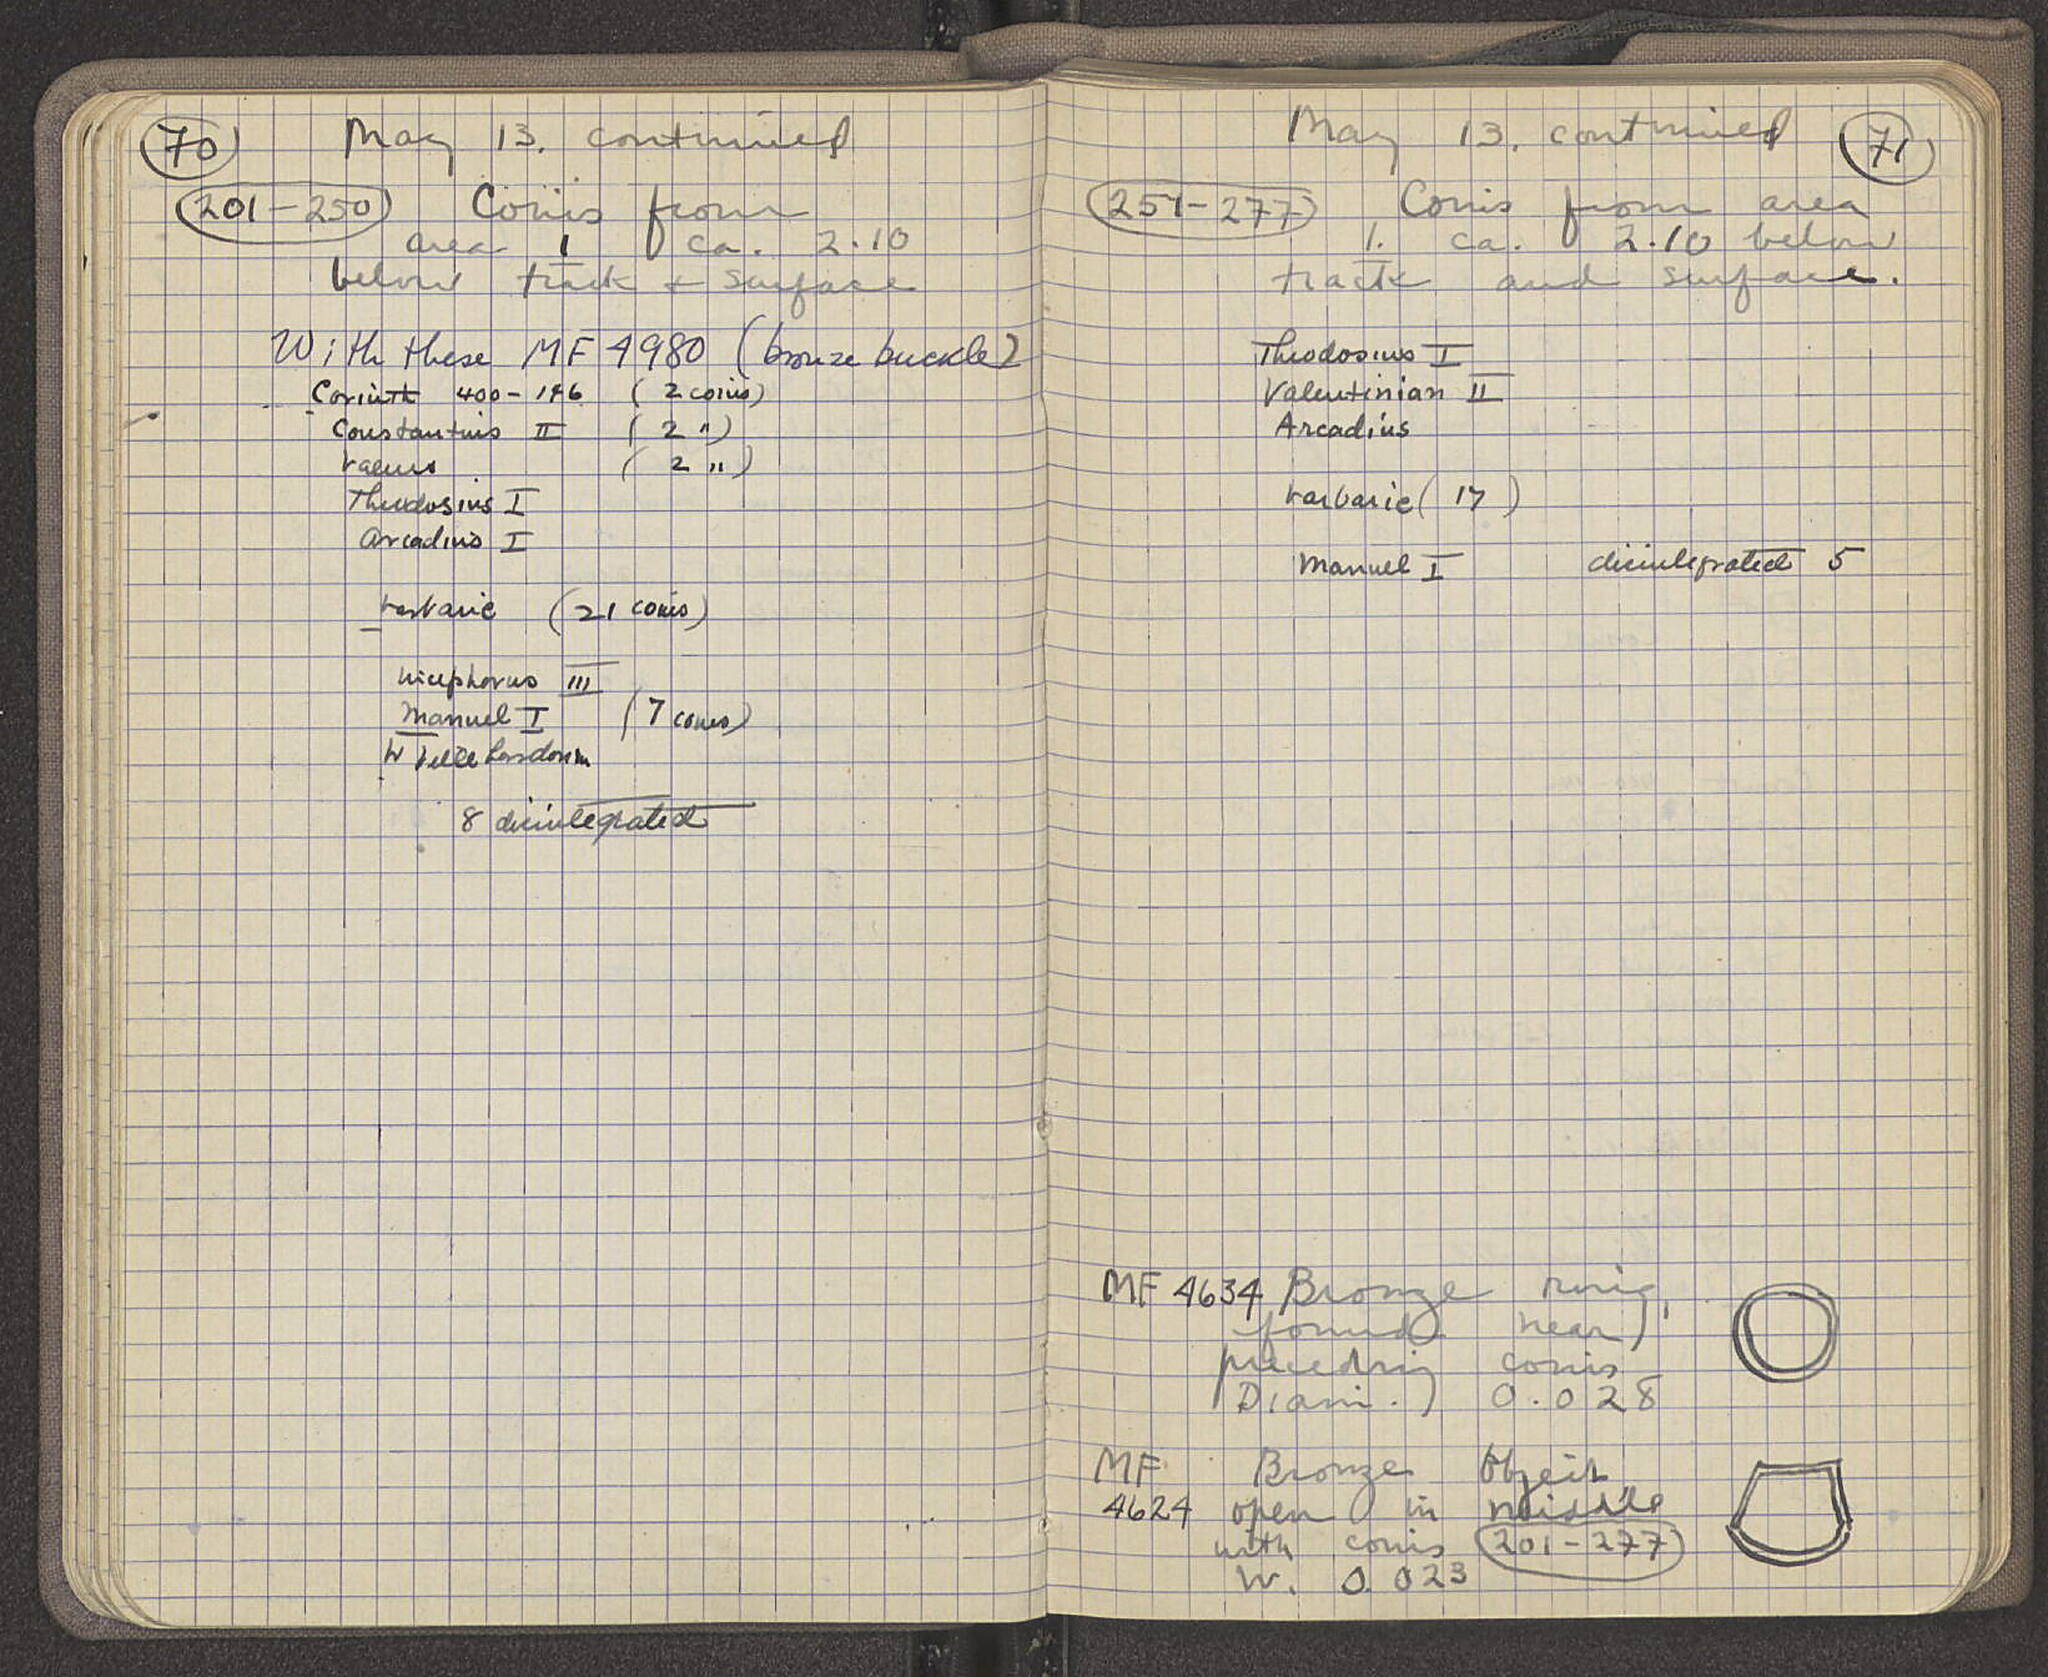 70
May 13. continued
201-250 Coins from
area 1 ca. 2.10
below track + surface
With these MF 4980 (bronze buckle)
Corinth 400-146 (2 coins)
Constantius II (2 ")
Valens (2 ")
Theodosius I
Arcadius I
barbaric (21 coins)
Nicephorus III
Manuel I (7 coins)
W Villehardouin
8 disintegrated
May 13. continued 71
251-277 Coins from area
1. ca. 2.10 below
track and surface.
Theodosius I
Valentinian II
Arcadius
barbaric (17)
Manuel I disintegrated 5
MF 4634 Bronze ring,
found near
preceding coins
Diam. 0.028
MF Bronze Object
4624 open in middle
with coins 201-277
W. 0.023